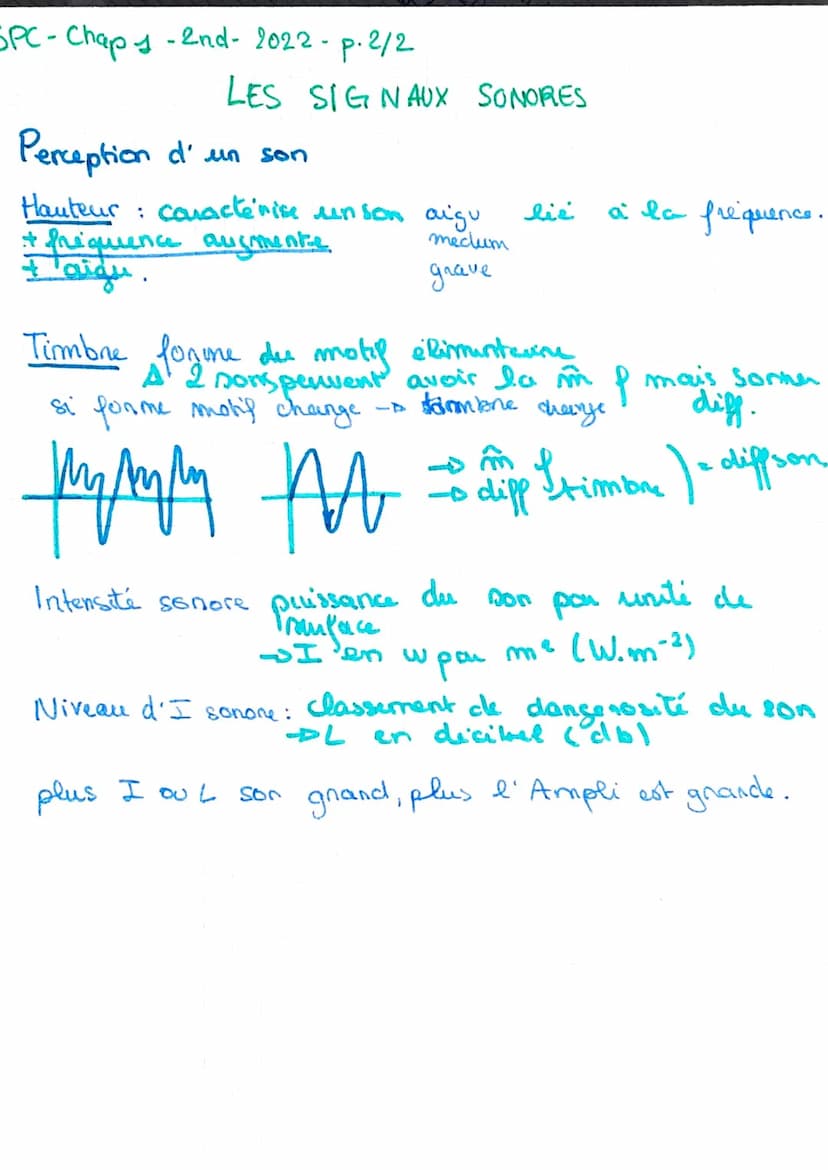 SPC - Chap 1 - 2nd - 2022 - p.2/2
LES SIGNAUX SONORES
Perception d'un son
Hauteur : caractérise un son aigu lié à la fréquence.
+ fréquence augmente medium
+ aigu. grave
Timbre forme du motif élémentaire
⚠ 2 sons peuvent avoir la m̂ f mais sonner
si forme motif change → timbre change diff.
→ m̂ f
→ diff timbre ) = diff son
Intensité sonore puissance du son par unité de
surface
→ I en W par m² (W.m⁻²)
Niveau d'I sonore : classement de dangerosité du son
→ L en décibel (db)
plus I ou L son grand, plus l'Ampli est grande.